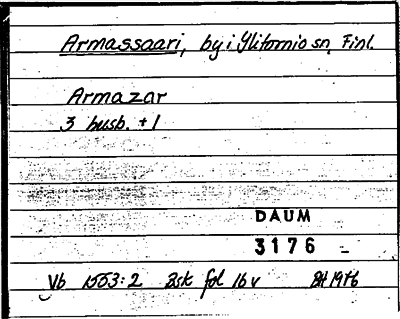 Armassaari, by i Ylitornio sn, Finl.
Armazar
3 husb. +1
DAUM
3176
Vb 1553:2 Bsk fol 16 v BH 1976